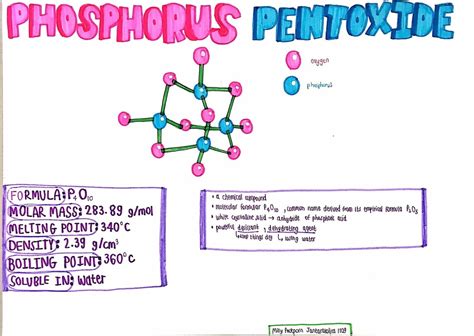 PHOSPHORUS PENTOXIDE
oxygen
phosphorus
FORMULA: P₄O₁₀
MOLAR MASS: 283.89 g/mol
MELTING POINT: 340°C
DENSITY: 2.39 g/cm³
BOILING POINT: 360°C
SOLUBLE IN: Water
• a chemical compound
• molecular formular P₄O₁₀, common name derived from its empirical formula P₂O₅
• white crystalline solid → anhydride of phosphoric acid
• powerful desiccant, dehydrating agent
using water